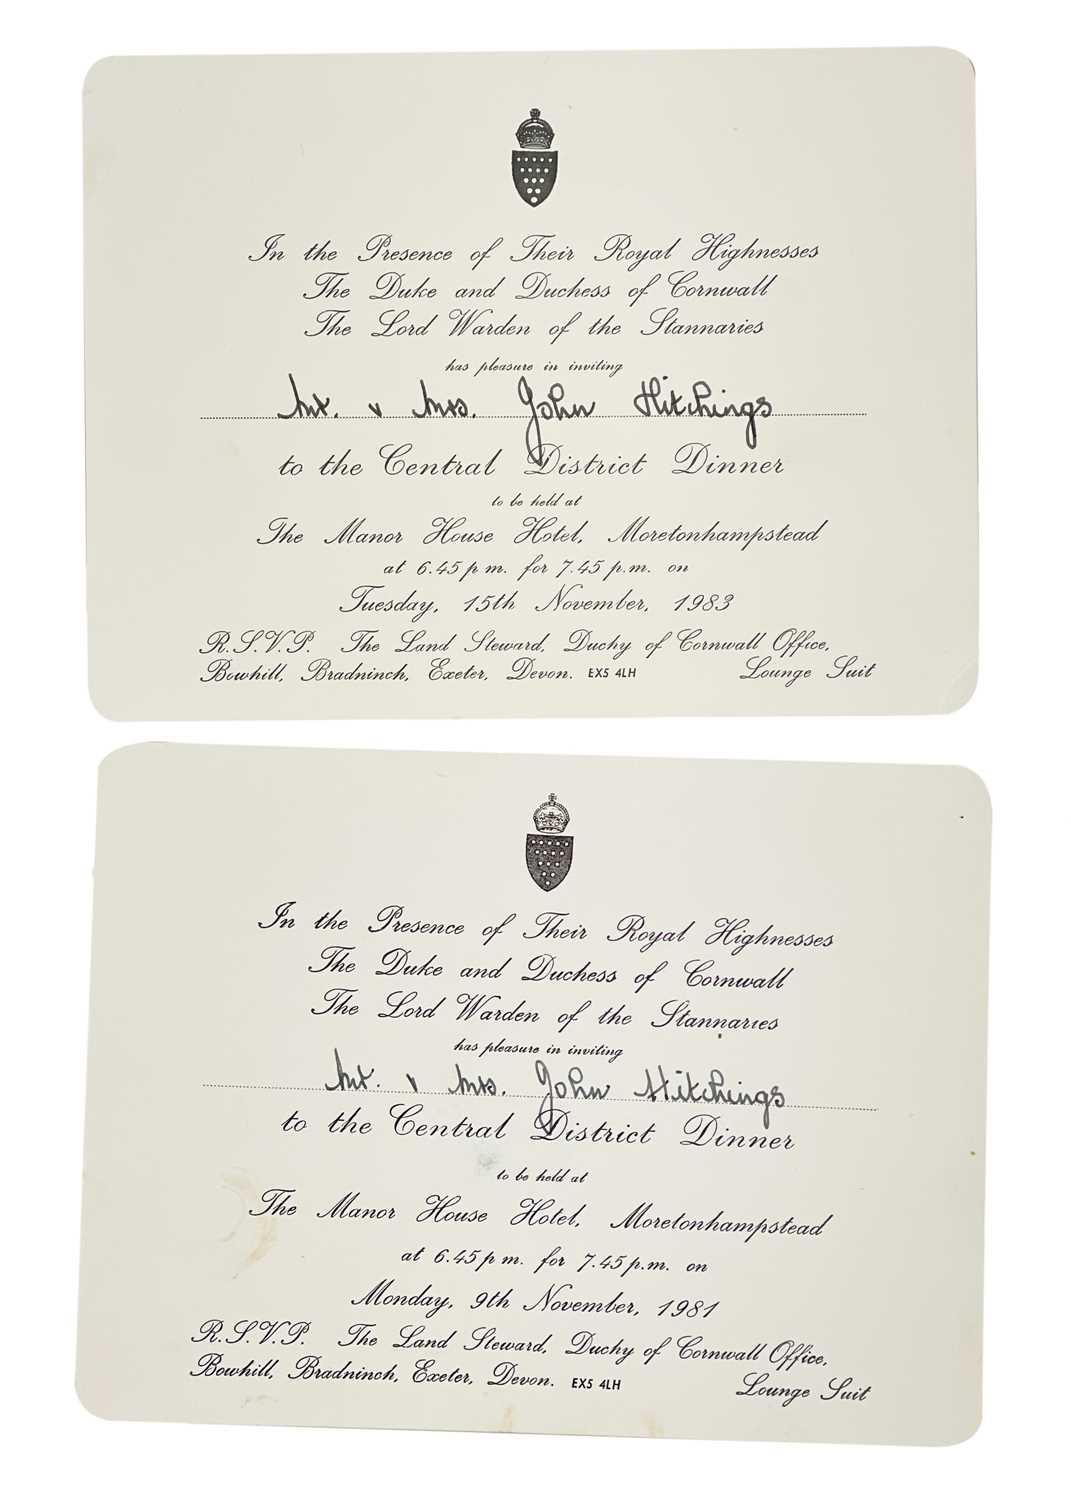 In the Presence of Their Royal Highnesses
The Duke and Duchess of Cornwall
The Lord Warden of the Stannaries
has pleasure in inviting
Mr. & Mrs. John Hitchings
to the Central District Dinner
to be held at
The Manor House Hotel, Moretonhampstead
at 6.45 p.m. for 7.45 p.m. on
Tuesday, 15th November, 1983
R.S.V.P. The Land Steward, Duchy of Cornwall Office,
Bowhill, Bradninch, Exeter, Devon. EX5 4LH Lounge Suit
In the Presence of Their Royal Highnesses
The Duke and Duchess of Cornwall
The Lord Warden of the Stannaries
has pleasure in inviting
Mr. & Mrs. John Hitchings
to the Central District Dinner
to be held at
The Manor House Hotel, Moretonhampstead
at 6.45 p.m. for 7.45 p.m. on
Monday, 9th November, 1981
R.S.V.P. The Land Steward, Duchy of Cornwall Office,
Bowhill, Bradninch, Exeter, Devon. EX5 4LH Lounge Suit